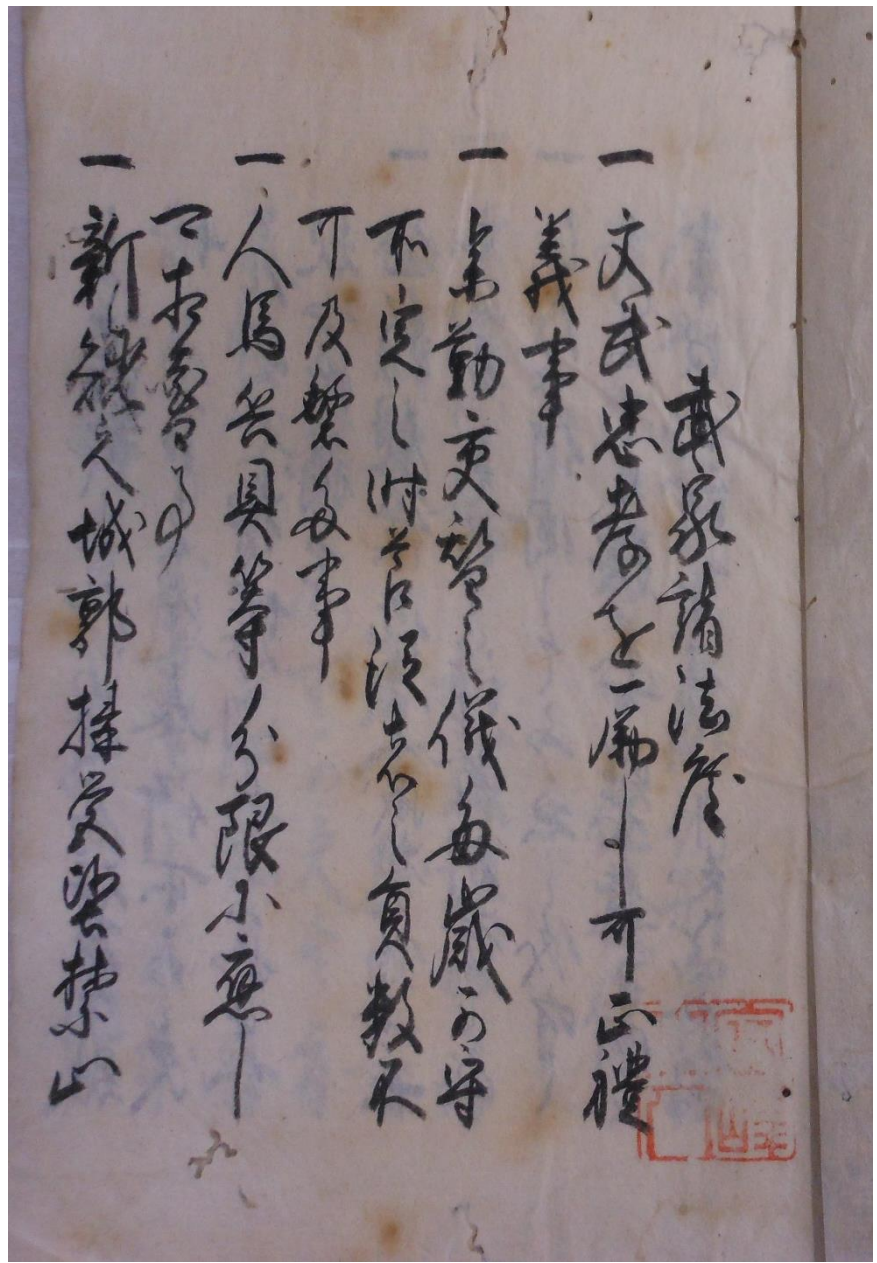 武家諸法度
一 文武忠孝を励し可正禮
義事
一 参勤交替之儀毎歳可守
所定之時節従者之員数不
可及繁多事
一 人馬兵具等分限に應し
可相嗜事
一 新規之城郭搆営堅禁止